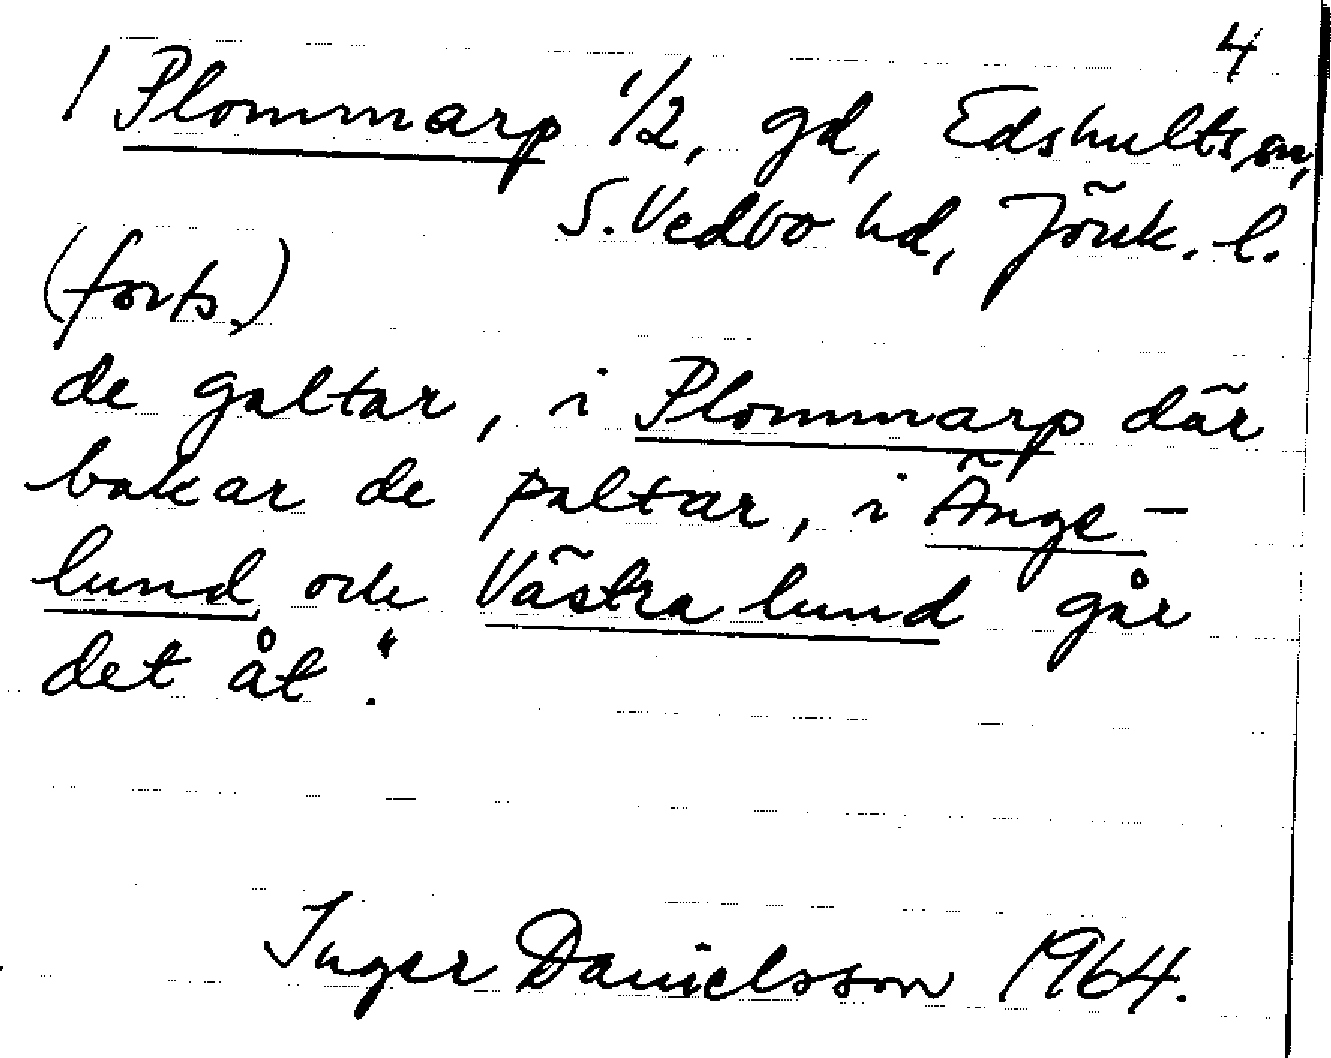 4
/ Plommarp 1/2, gd, Edshults sn,
S. Vedbo hd, Jönk. l.
(forts.)
de galtar, i Plommarp där
bakar de paltar, i Änge-
lund och Västra lund går
det åt."
Inger Danielsson 1964.